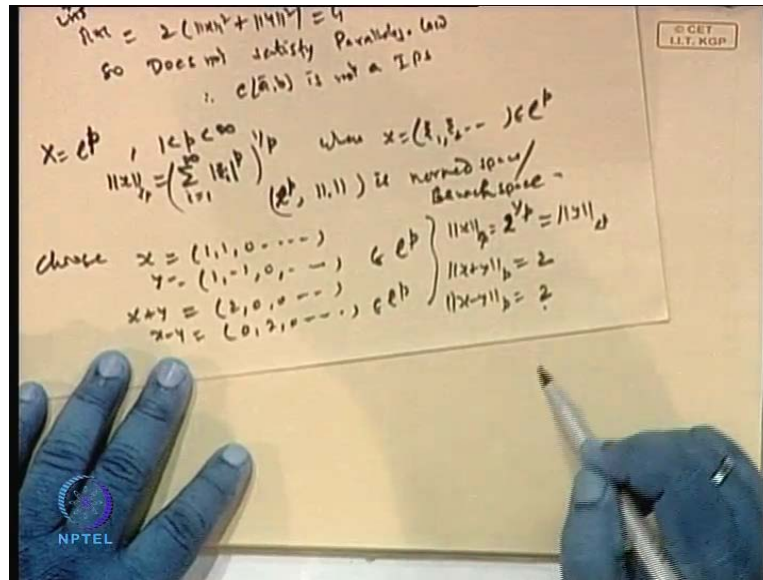 R.H.S = 2(||x||² + ||y||²) = 4
So Does not satisfy Parallelo. law
∴ C[a,b] is not a IPS
© CET
I.I.T. KGP
X = lᵖ, 1<p<∞
||x||_p = (∑_{i=1}^∞ |ξ_i|ᵖ)^{1/p} where x = (ξ₁, ξ₂ --- ) ∈ lᵖ
(lᵖ, ||.||) is normed space/
Banach space -
Choose x = (1, 1, 0 - - - -)
y = (1, -1, 0, - - ) ∈ lᵖ
x+y = (2, 0, 0 - - )
x-y = (0, 2, 0 - - - -) ∈ lᵖ
||x||_p = 2^{1/p} = ||y||_p
||x+y||_p = 2
||x-y||_p = 2
NPTEL